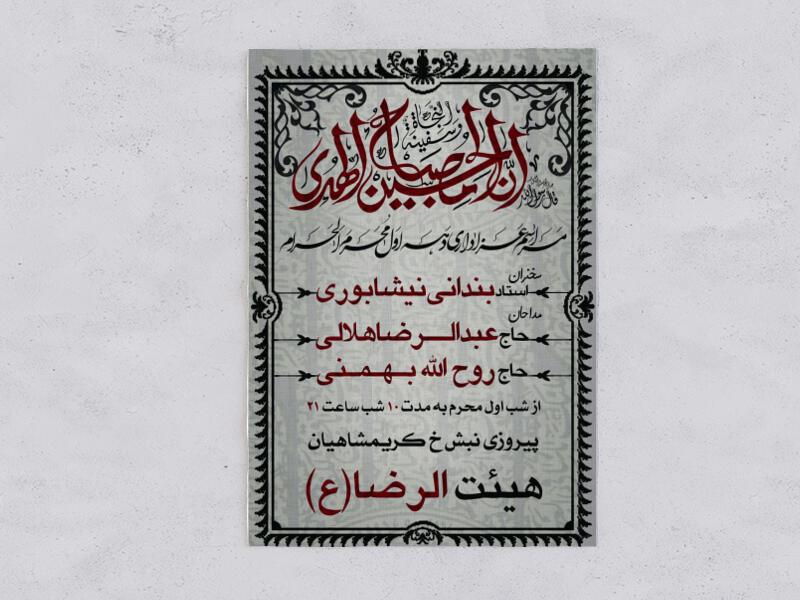 قال رسول الله
ان الحسین مصباح الهدی
و سفینة النجاة
مراسم عزاداری دهه اول محرم الحرام
سخنران
استاد بندانی نیشابوری
مداحان
حاج عبدالرضا هلالی
حاج روح الله بهمنی
از شب اول محرم به مدت ۱۰ شب ساعت ۲۱
پیروزی نبش خ کریمشاهیان
هیئت الرضا(ع)